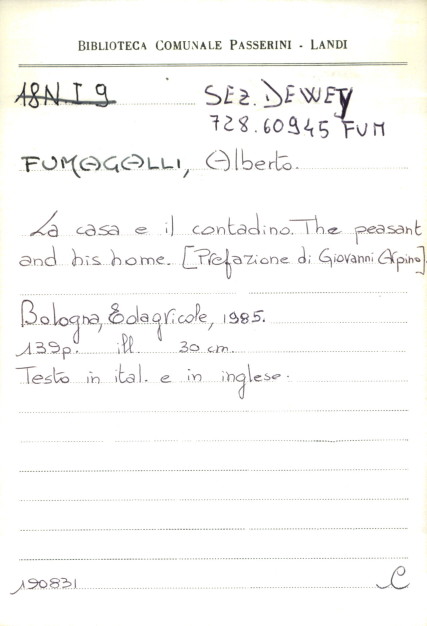 BIBLIOTECA COMUNALE PASSERINI - LANDI
18N I 9 SEZ. DEWEY
728.60945 FUM
FUMAGALLI, Alberto.
La casa e il contadino. The peasant
and his home. [Prefazione di Giovanni Arpino].
Bologna, Edagricole, 1985.
139p. ill. 30 cm.
Testo in ital. e in inglese.
190831 C